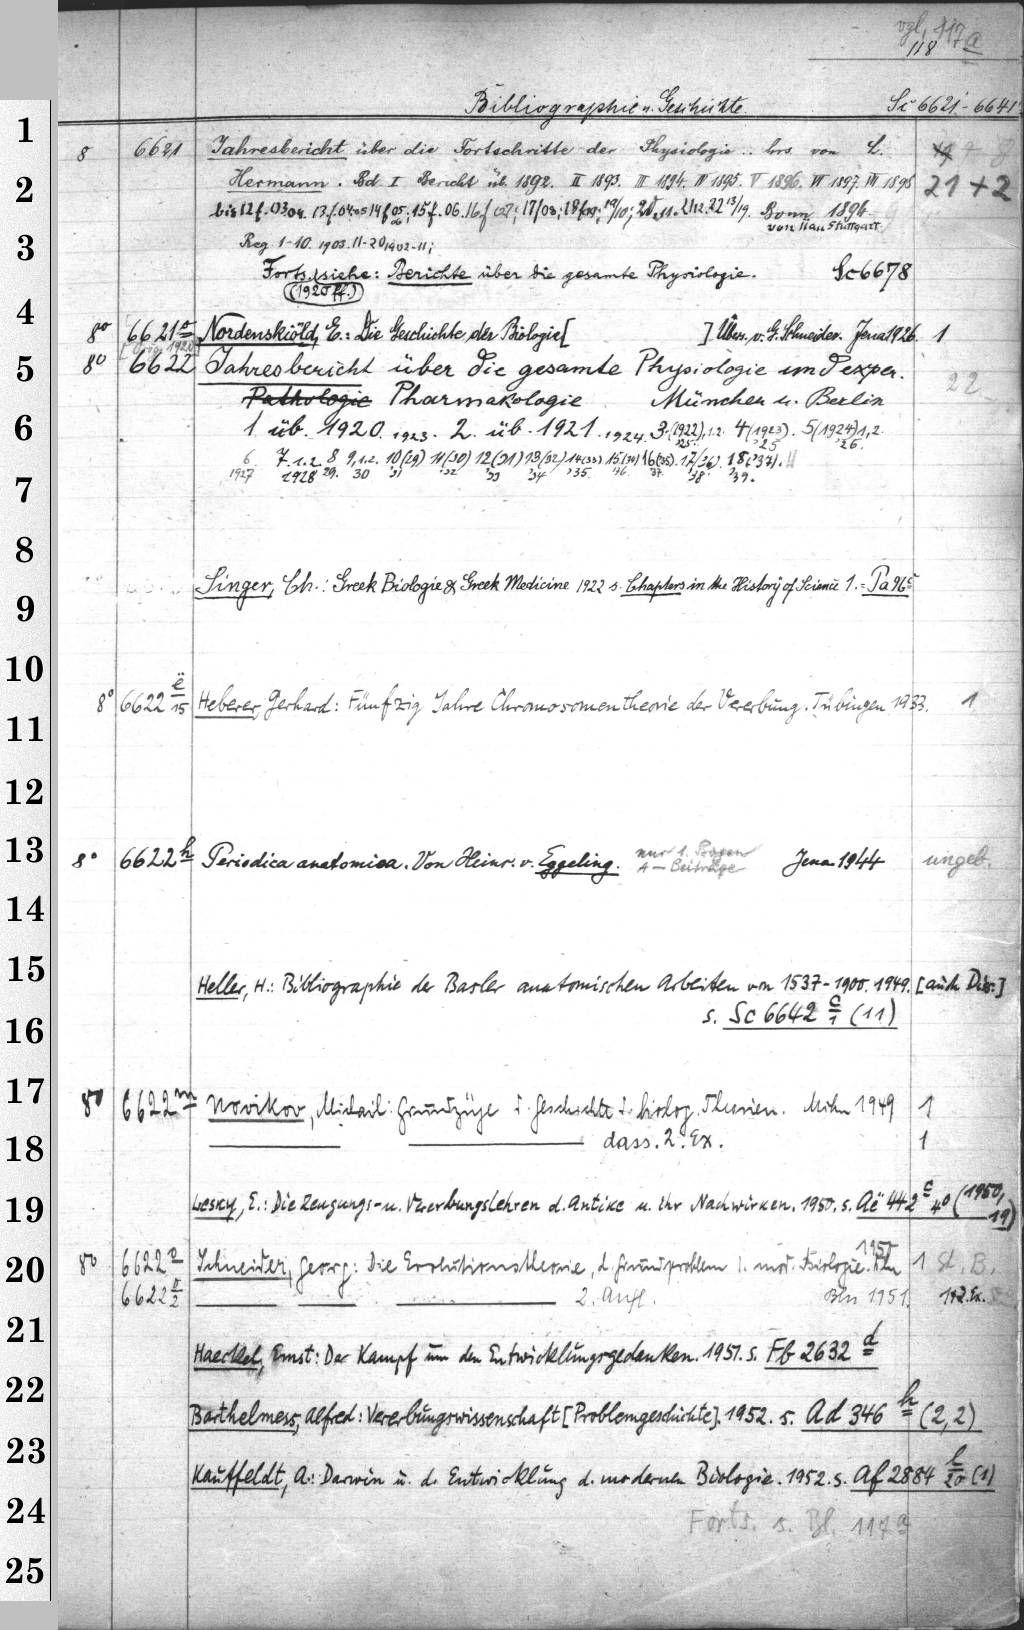 vgl. 117a
118
Bibliographie u. Geschichte. Sc 6621 - 6641
1
8 6621 Jahresbericht über die Fortschritte der Physiologie .. hrs. von L.
2
Hermann. Bd I Bericht üb. 1892. II 1893. III 1894. IV 1895. V 1896. VI 1897. VII 1898 21 + 2
Bonn 1894.
von II an Stuttgart.
3
Reg. 1-10. 1903. 11-20 1902-11;
Forts. siehe: Berichte über die gesamte Physiologie. Sc 6678
(1920 ff.)
4
8° 6621a Nordenskiöld, E.: Die Geschichte der Biologie [ ] Übers. v. G. Schneider. Jena 1926. 1
5
8° 6622 Jahresbericht über die gesamte Physiologie und exper. 22
Pathologie Pharmakologie München u. Berlin
6
1 üb. 1920. 1923. 2. üb. 1921. 1924. 3. (1922), 1.2. '25. 4 (1923). '25 5 (1924) 1,2. '26.
6. 1927 7. 1.2. 1928 8 29. 9, 1.2. 30 10 (29) '31 11 (30) '32 12 (31) '33 13 (32) '34 14 (33) '35. 15 (34) '36. 16 (35). '37. 17 (36). '38 18 ('37). '39.
7
8
9
Singer, Ch.: Greek Biologie & Greek Medicine 1922 s. Chapters in the History of Science 1. = Pa 96c
10
8° 6622 ë/15 Heberer, Gerhard: Fünfzig Jahre Chromosomentheorie der Vererbung. Tübingen 1933. 1
11
12
13
8° 6622h Periodica anatomica. Von Heinr. v. Eggeling. nur 1. Bogen Jena 1944 ungeb.
A — Beiträge
14
15
Heller, H.: Bibliographie der Basler anatomischen Arbeiten von 1537 - 1900. 1949. [auch Diss.]
16
s. Sc 6642 c/1 (11)
17
8° 6622m Novikov, Michail: Grundzüge d. Geschichte d. biolog. Theorien. Mchn 1949 1
18
dass. 2. Ex. 1
19
Lesky, E.: Die Zeugungs- u. Vererbungslehren d. Antike u. ihr Nachwirken. 1950. s. Aë 442 c 4° (1950, 19)
20
8° 6622n Schneider, Georg: Die Evolutionstheorie, d. Grundproblem d. mod. Biologie. Bln 1950 1 St. B.
6622 n/2 2. Aufl. Bln 1951. 1+2. Ex.
21
Haeckel, Ernst: Der Kampf um den Entwicklungsgedanken. 1951. s. Fb 2632 d
22
Barthelmess, Alfred: Vererbungswissenschaft [Problemgeschichte]. 1952. s. Ad 346 h (2,2)
23
Kauffeldt, A.: Darwin u. d. Entwicklung d. modernen Biologie. 1952. s. Af 2884 l/20 (1)
24
Forts. s. Bl. 117a
25